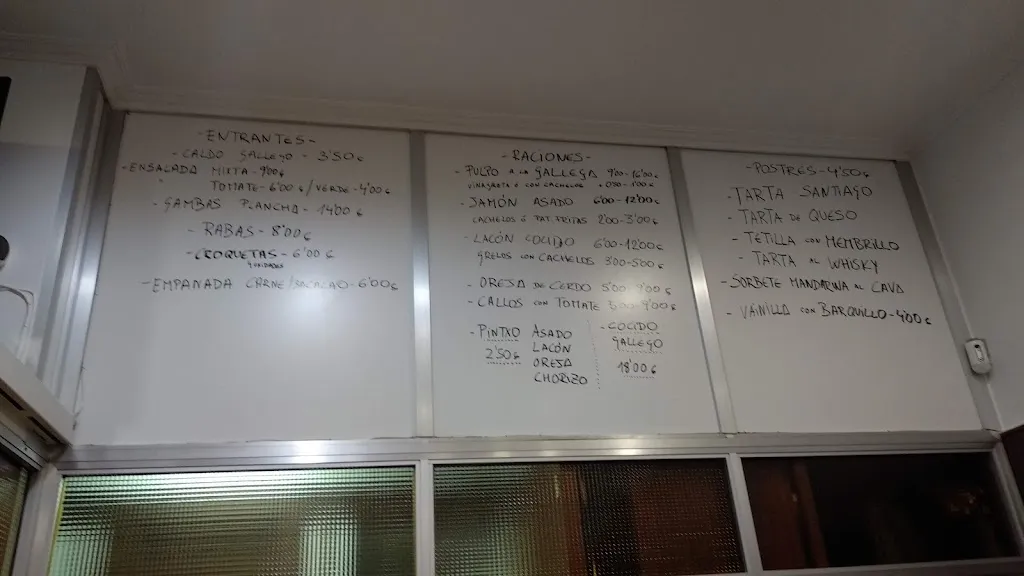 -ENTRANTES-
- CALDO GALLEGO - 3'50€
- ENSALADA MIXTA - 9'00€
TOMATE - 6'00€/VERDE - 4'00€
- GAMBAS PLANCHA - 14'00€
- RABAS - 8'00€
- CROQUETAS - 6'00€
UNIDADES
- EMPANADA CARNE/BACALAO - 6'00€
- RACIONES -
- PULPO A LA GALLEGA 9'00 - 16'00€
VINAGRETA Ó CON CACHELOS
- JAMÓN ASADO 6'00 - 12'00€
CACHELOS Ó PAT. FRITAS 2'00 - 3'00€
- LACÓN COCIDO 6'00 - 12'00€
GRELOS CON CACHELOS 3'00 - 5'00€
- OREJA DE CERDO 5'00 - 9'00€
- CALLOS CON TOMATE 5'00 - 9'00€
- PINTXO ASADO
2'50€ LACÓN
OREJA
CHORIZO
- COCIDO
GALLEGO
18'00€
- POSTRES - 4'50€
- TARTA SANTIAGO
- TARTA DE QUESO
- TETILLA CON MEMBRILLO
- TARTA AL WHISKY
- SORBETE MANDARINA AL CAVA
- VAINILLA CON BARQUILLO - 4'00€